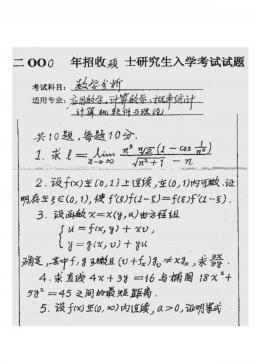 二 000 年招收硕 士研究生入学考试试题
考试科目: 数学分析
适用专业: 应用数学, 计算数学, 概率统计
计算机软件与理论
共10题, 每题10分.
1. 求 l = lim n→∞ n³ ⁿ√2 (1 - cos 1/n²) / √n²+1 - n
2. 设 f(x) 在 [0,1] 上连续, 在 (0,1) 内可微. 证
明存在 ξ∈(0,1), 使 f'(ξ)f(1-ξ)=f(ξ)f'(1-ξ).
3. 设函数 x=x(y,u) 由方程组
{ u = f(x,y) + xv,
y = g(x,v) + yu
确定, 其中 f, g 可微且 求 ∂x/∂y.
4. 求直线 4x + 3y = 16 与椭圆 18x² +
5y² = 45 之间的最短距离.
5. 设 f(x) 在 (0,∞) 内连续, a>0, 证明等式